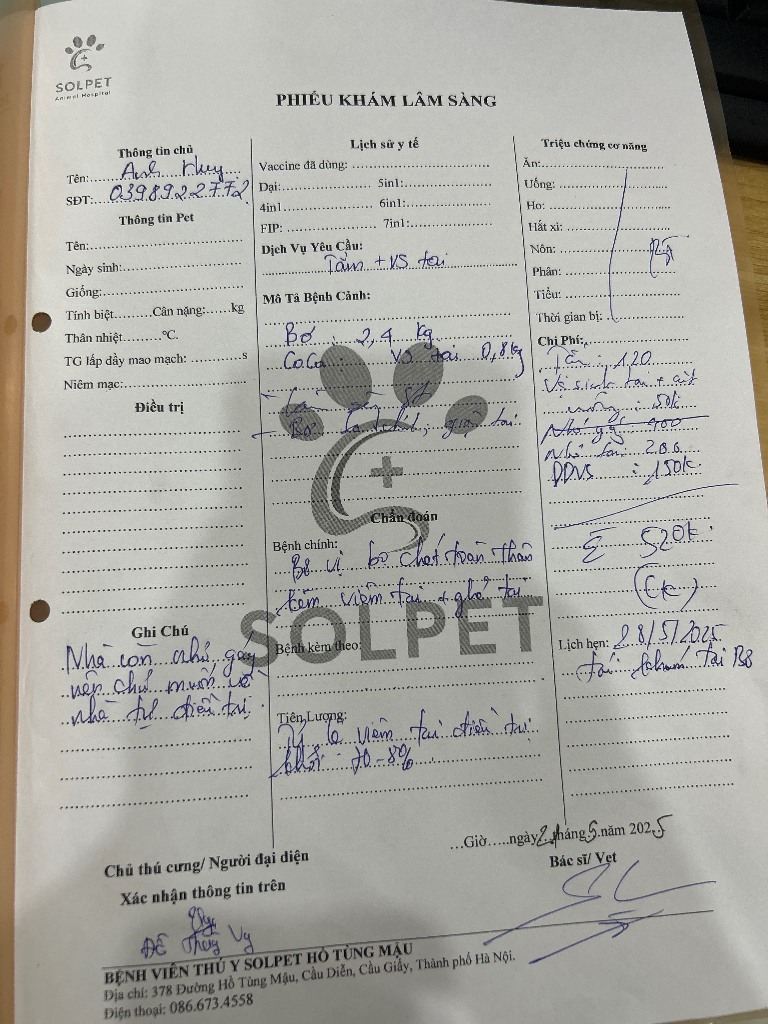 SOLPET
Animal Hospital
PHIẾU KHÁM LÂM SÀNG
Thông tin chủ
Tên: Anh Huy
SĐT: 0398922772
Thông tin Pet
Tên:
Ngày sinh:
Giống:
Tính biệt Cân nặng: kg
Thân nhiệt °C.
TG lấp đầy mao mạch: s
Niêm mạc:
Điều trị
Ghi Chú
Nhà còn nhỏ, gây
nên chủ muốn về
nhà tự điều trị.
Lịch sử y tế
Vaccine đã dùng:
Dại: 5in1:
4in1 6in1:
FIP: 7in1:
Dịch Vụ Yêu Cầu:
Tắm + VS tai
Mô Tả Bệnh Cảnh:
Bơ : 2,4 kg
CoCa : VS tai 0,8kg
- Bơ giãy tai
Chẩn đoán
Bệnh chính:
Bơ vị bọ chét toàn thân
kèm viêm tai + ghẻ tai
Bệnh kèm theo:
Tiên Lượng:
Tỷ lệ viêm tai điều trị
khỏi 70-8%
Triệu chứng cơ năng
Ăn:
Uống:
Ho:
Hắt xì:
Nôn:
Phân:
BT
Tiểu:
Thời gian bị:
Chi Phí:
Tắm : 120
Vệ sinh tai + cắt
móng : 50k
Nhỏ gáy 900
Nhỏ tai: 200
DDVS : 150k.
Σ 520k.
(CK)
Lịch hẹn: 28/5/2025
tái khám tai Bơ
…Giờ…..ngày 21 tháng 5 năm 2025
Bác sĩ/ Vet
Chủ thú cưng/ Người đại diện
Xác nhận thông tin trên
Vy
Đỗ Thúy Vy
BỆNH VIỆN THÚ Y SOLPET HỒ TÙNG MẬU
Địa chỉ: 378 Đường Hồ Tùng Mậu, Cầu Diễn, Cầu Giấy, Thành phố Hà Nội.
Điện thoại: 086.673.4558
SOLPET